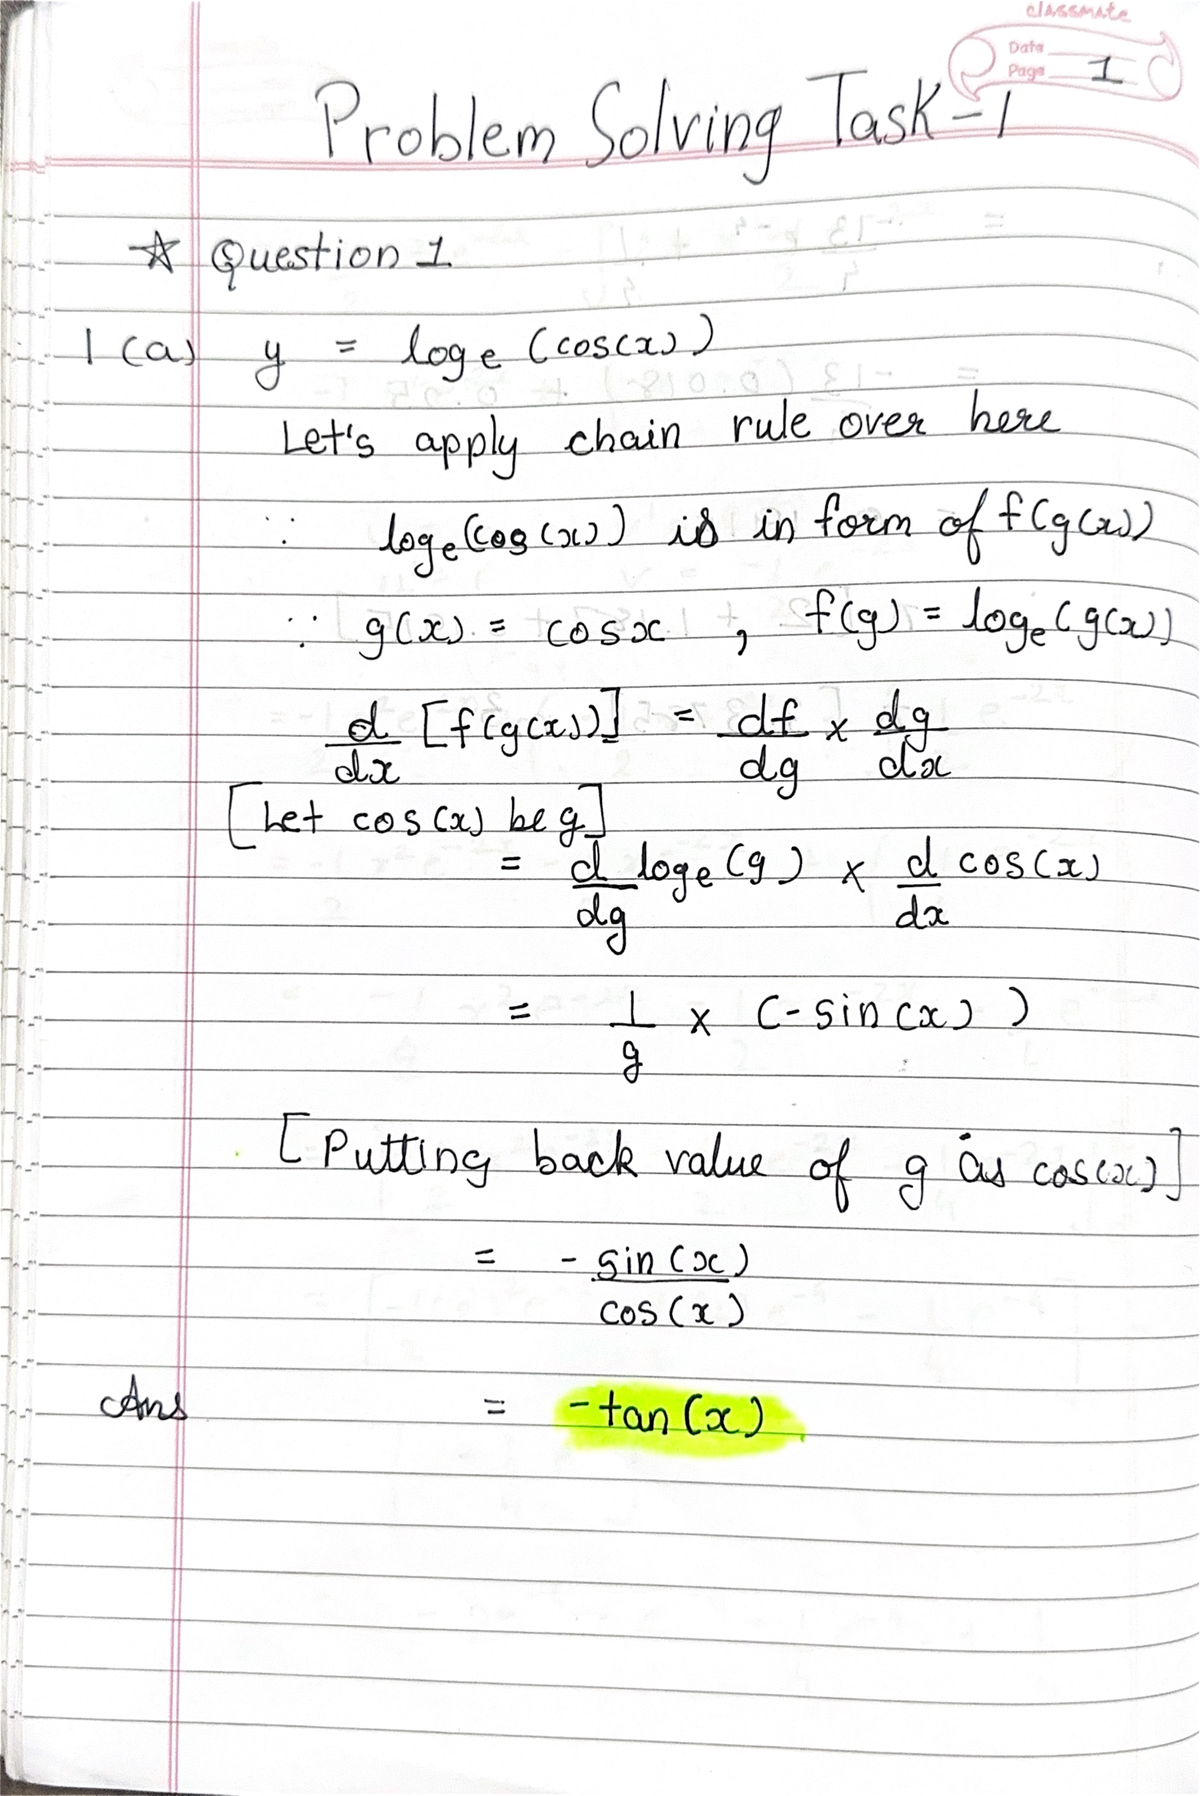 classmate
Date
Page 1
Problem Solving Task-1
☆ Question 1
1(a) y = loge (cos(x))
Let's apply chain rule over here
∵ loge(cos(x)) is in form of f(g(x))
∵ g(x) = cosx , f(g) = loge(g(x))
d/dx [f(g(x))] = df/dg × dg/dx
[Let cos(x) be g]
= d/dg loge(g) × d/dx cos(x)
= 1/g × (-sin(x))
[Putting back value of g as cos(x)]
= -sin(x)/cos(x)
Ans = -tan(x)